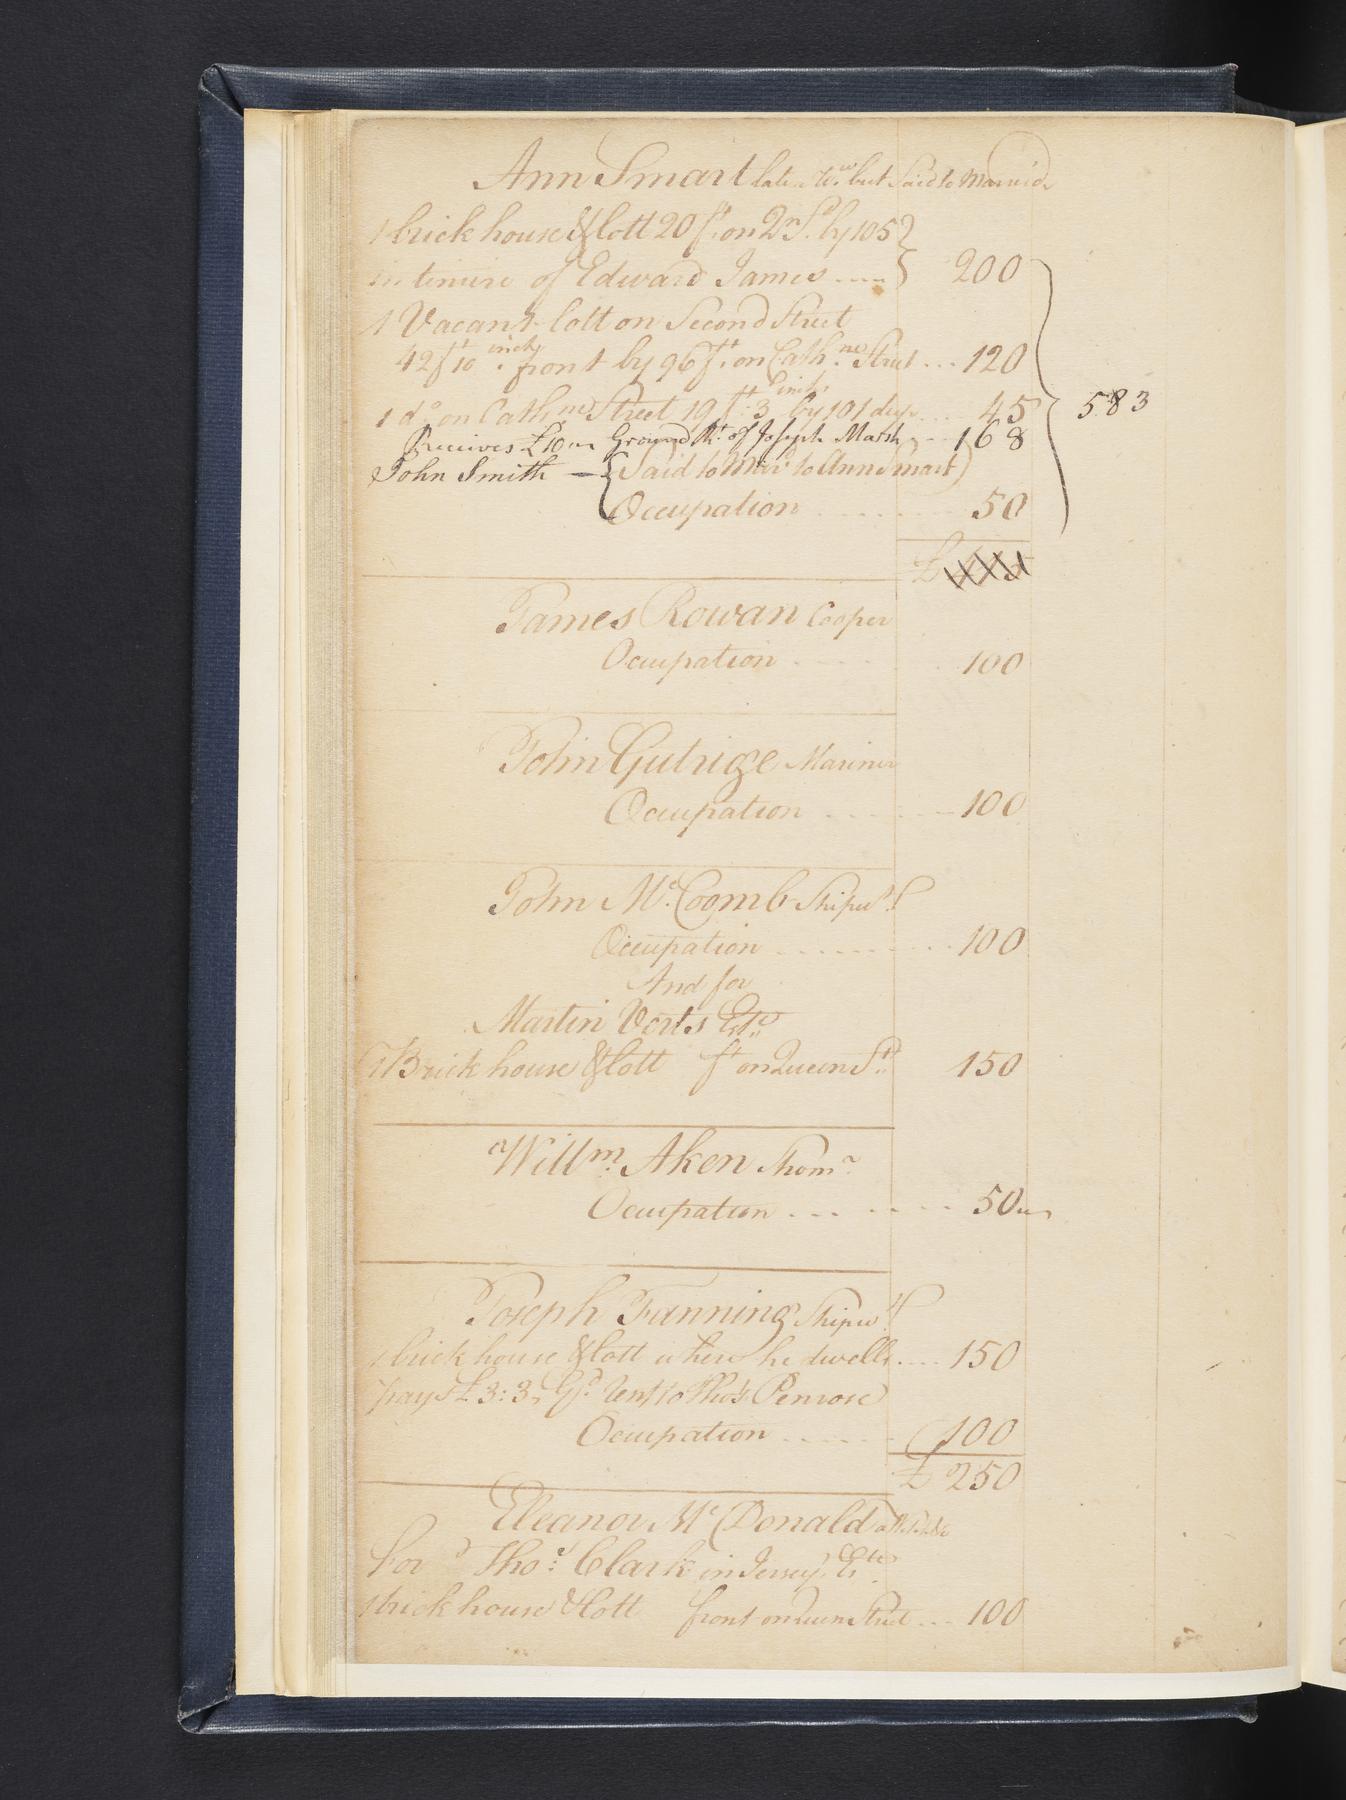 Ann Smart late Wiw but Said to Married
1 brick house & lott 20 ft. on 2n St. by 105
in tenure of Edward James .... 200
1 Vacant lott on Second Street
42 ft 10 inch front by 96 ft. on Cathne Street ... 120
1 do on Cathne Street 19 ft: 3 inch by 101 deep ... 45
583
Receives £10 Ground Rt. of Joseph Marsh - - 168
John Smith — (Said to Mard to Ann Smart)
Occupation ........ 50
£
James Rowan Cooper
Occupation .... 100
John Gutrige Mariner
Occupation ...... 100
John Mc. Coomb Shipwt
Occupation ......... 100
And for
Martin Verts Este
1 Brick house & lott ft on Queen St. 150
Willm. Aken Shomr
Occupation ... .... 50
Joseph Fanning Shipwt
1 brick house & lott where he dwells .... 150
pays £3:3, Gd. Rent to Thos Penrose
Occupation ...... 100
£ 250
Eleanor Mc Donald
for Thos: Clark in Jersey Este
1 brick house & lott front on Queen Street ... 100